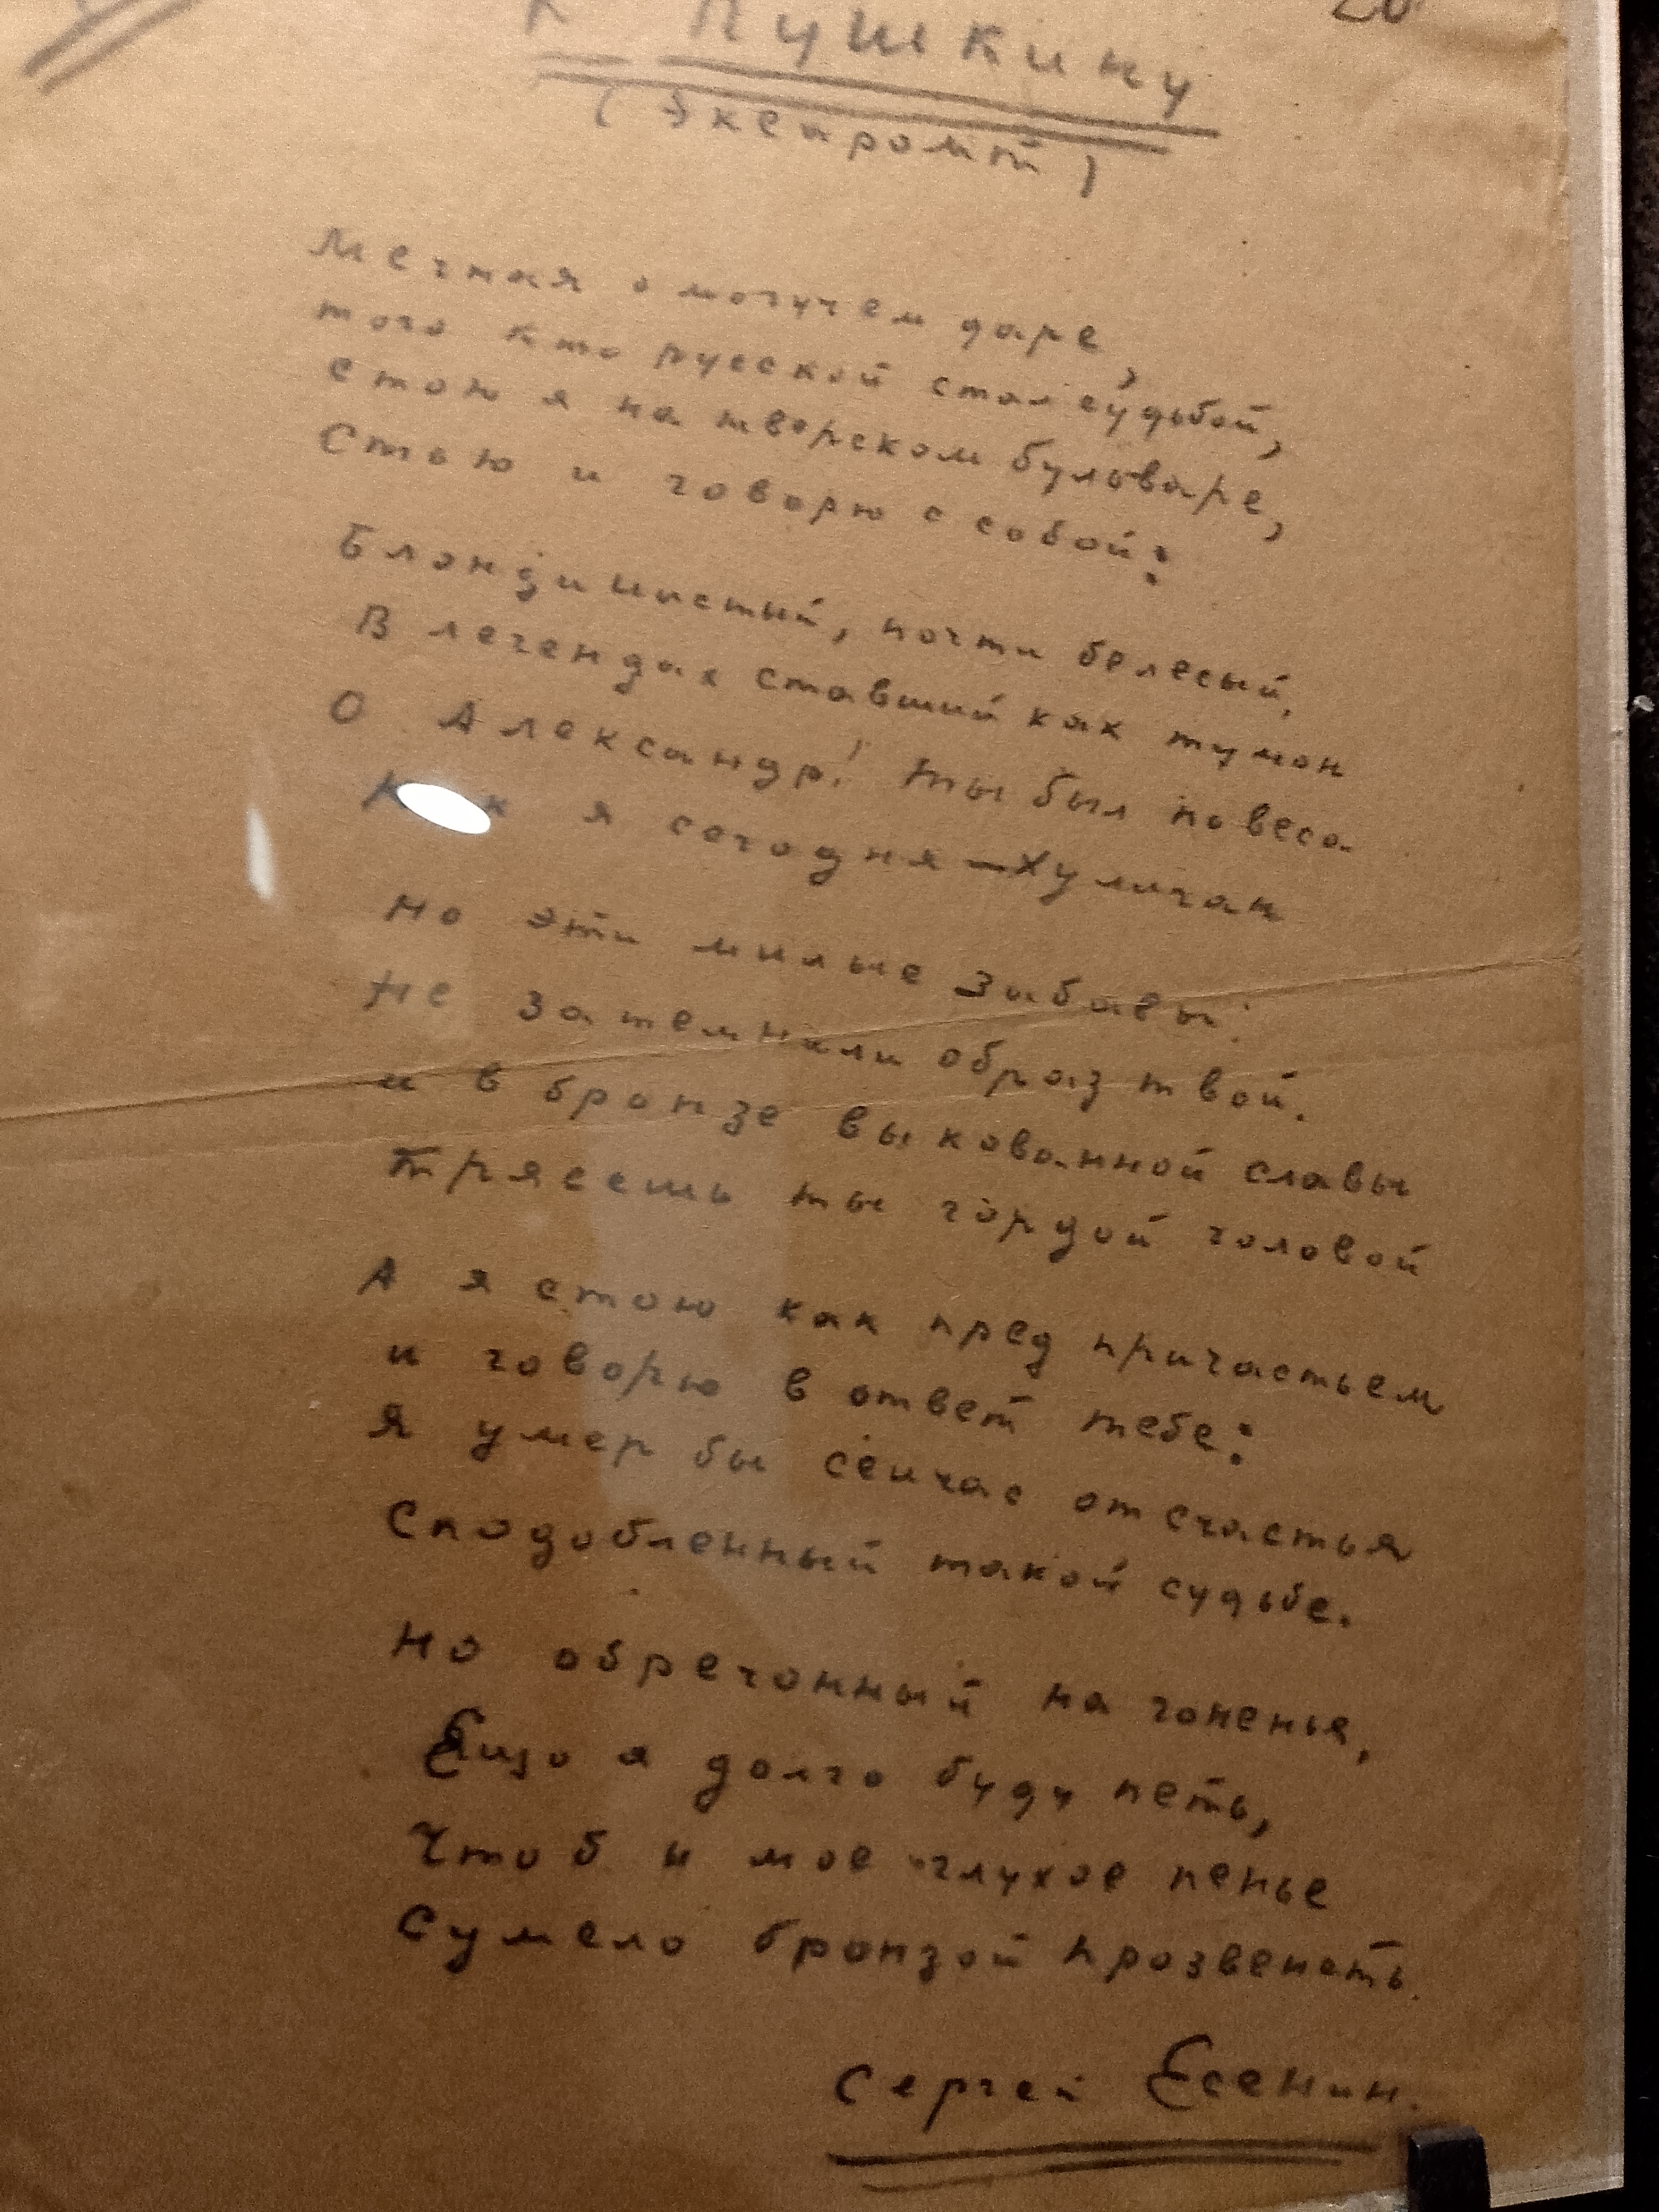 К Пушкину
(Экспромт)
Мечтая о могучем даре,
того кто русской стал судьбой,
стою я на тверском бульваре,
Стою и говорю с собой:
Блондинистый, почти белесый,
В легендах ставший как туман
О Александр! ты был повеса
Как я сегодня - Хулиган
Но эти милые забавы
Не затемнили образ твой.
и в бронзе выкованной славы
Трясешь ты гордой головой
А я стою как пред причастьем
и говорю в ответ тебе:
Я умер бы сейчас от счастья
Сподобленный такой судьбе.
Но обречонный на гоненья,
Ещо я долго буду петь,
Чтоб и мое глухое пенье
Сумело бронзой прозвенеть.
Сергей Есенин.